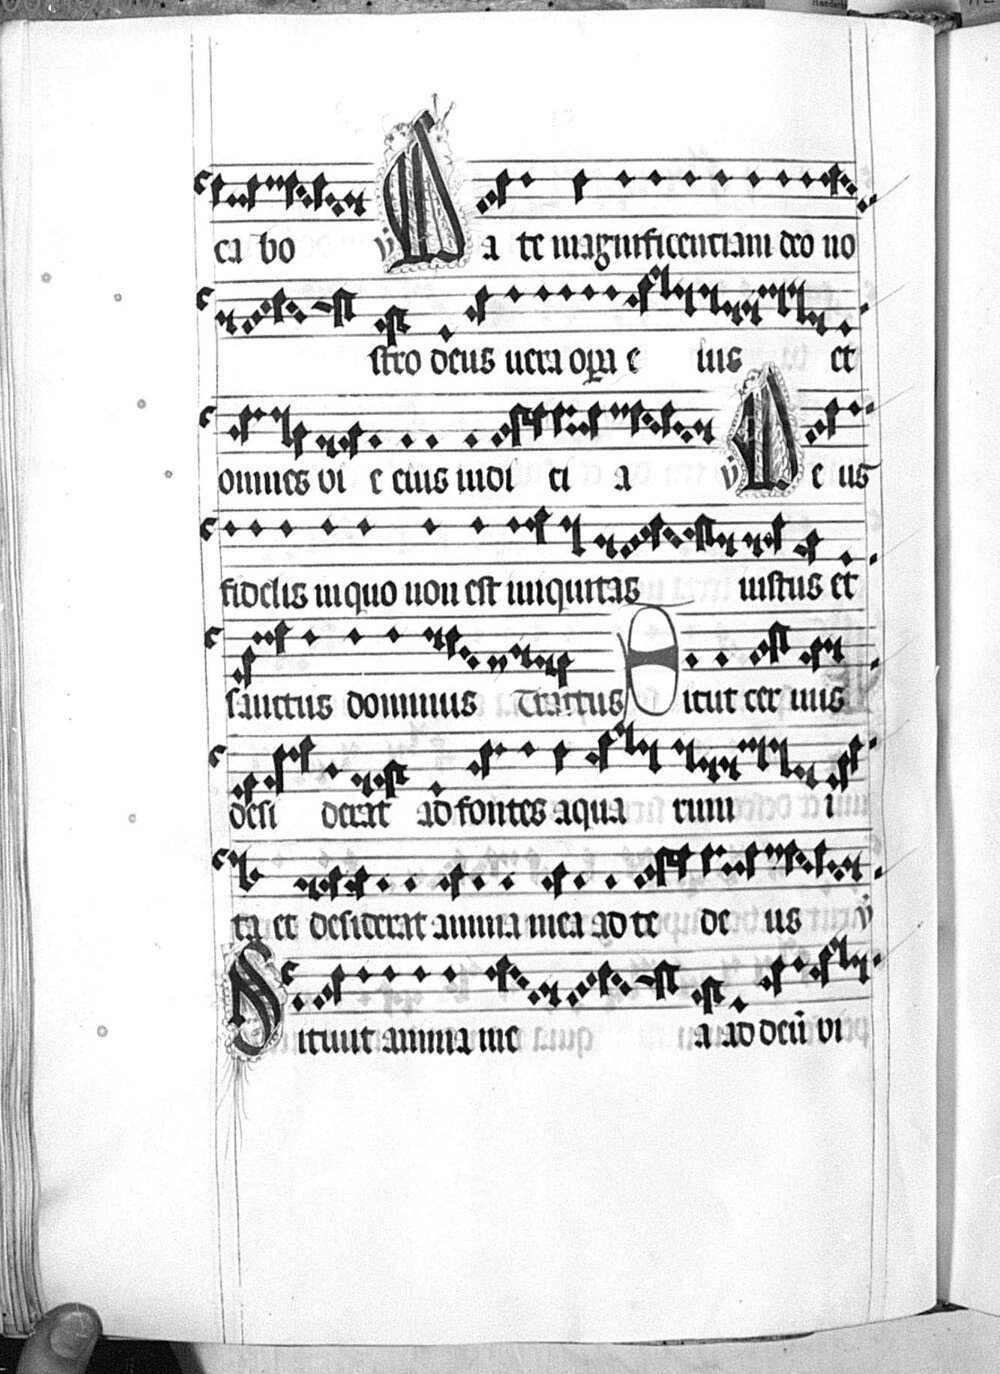 ca bo ℣ Da te magnificentiam deo no
stro deus vera opa e ius et
omnes vi e eius iudi ci a ℣ De us
fidelis in quo non est iniquitas iustus et
sanctus dominus Tractus Sicut cer uus
desi derat ad fontes aqua rum i
ta et desiderat anima mea ad te de us ℣
Sitiuit anima me a ad deū vi